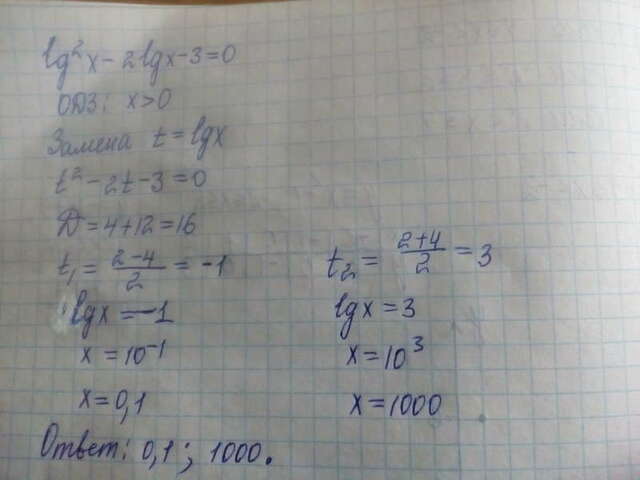 lg²x - 2lgx - 3 = 0
ОДЗ: x > 0
Замена t = lgx
t² - 2t - 3 = 0
D = 4 + 12 = 16
t₁ = (2-4)/2 = -1
lgx = -1
x = 10⁻¹
x = 0,1
t₂ = (2+4)/2 = 3
lgx = 3
x = 10³
x = 1000
Ответ: 0,1; 1000.